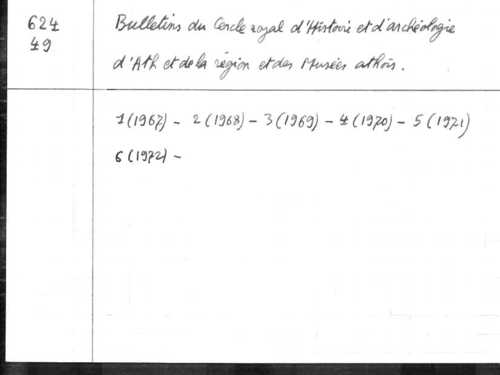 624
49
Bulletins du Cercle royal d'Histoire et d'archéologie
d'Ath et de la région et des Musées athois.
1 (1967) - 2 (1968) - 3 (1969) - 4 (1970) - 5 (1971)
6 (1972) -